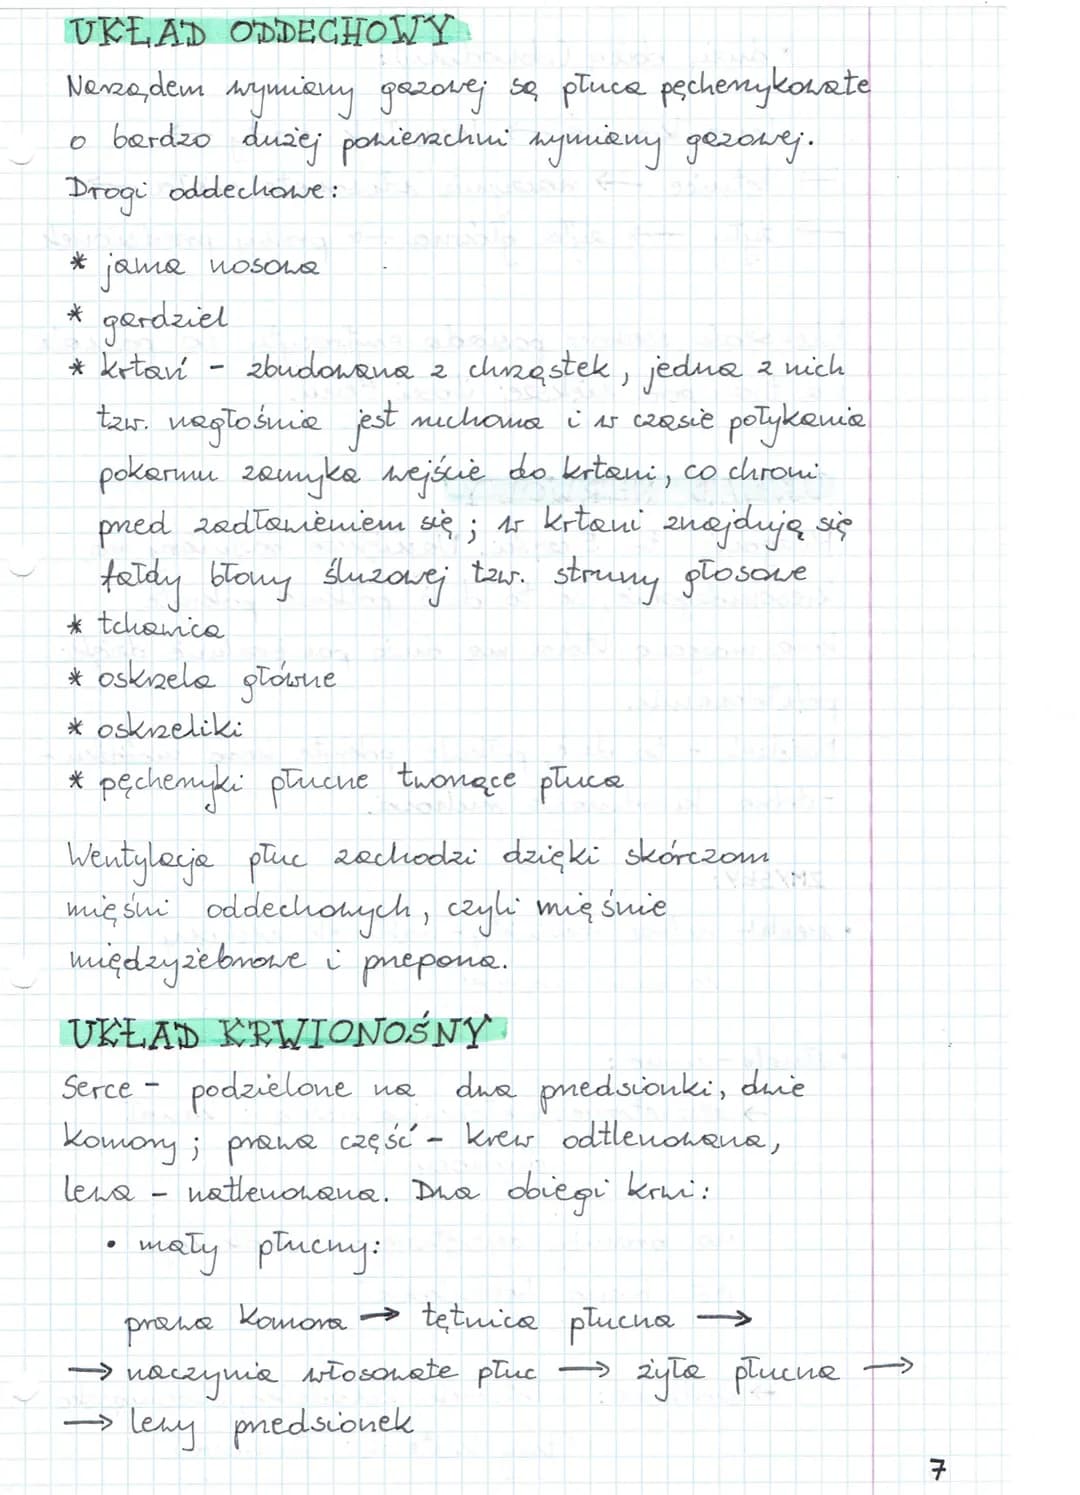 UKŁAD ODDECHOWY
Narządem wymiany gazowej są płuca pęcherzykowate
o bardzo dużej powierzchni wymiany gazowej.
Drogi oddechowe:
* jama nosowa
* gardziel
* krtań - zbudowana z chrząstek, jedna z nich
tzw. nagłośnia jest ruchoma i w czasie połykania
pokarmu zamyka wejście do krtani, co chroni
przed zadławieniem się; w krtani znajdują się
fałdy błony śluzowej tzw. struny głosowe
* tchawica
* oskrzela główne
* oskrzeliki
* pęcherzyki płucne tworzące płuca
Wentylacja płuc zachodzi dzięki skórczom
mięśni oddechowych, czyli mięśnie
międzyżebrowe i przepona.
UKŁAD KRWIONOŚNY
Serce - podzielone na dwa przedsionki, dwie
komory; prawa część - krew odtlenowana,
lewa - natlenowana. Dwa obiegi krwi:
• mały płucny:
prawa komora → tętnica płucna →
→ naczynia włosowate płuc → żyła płucna →
→ lewy przedsionek
7